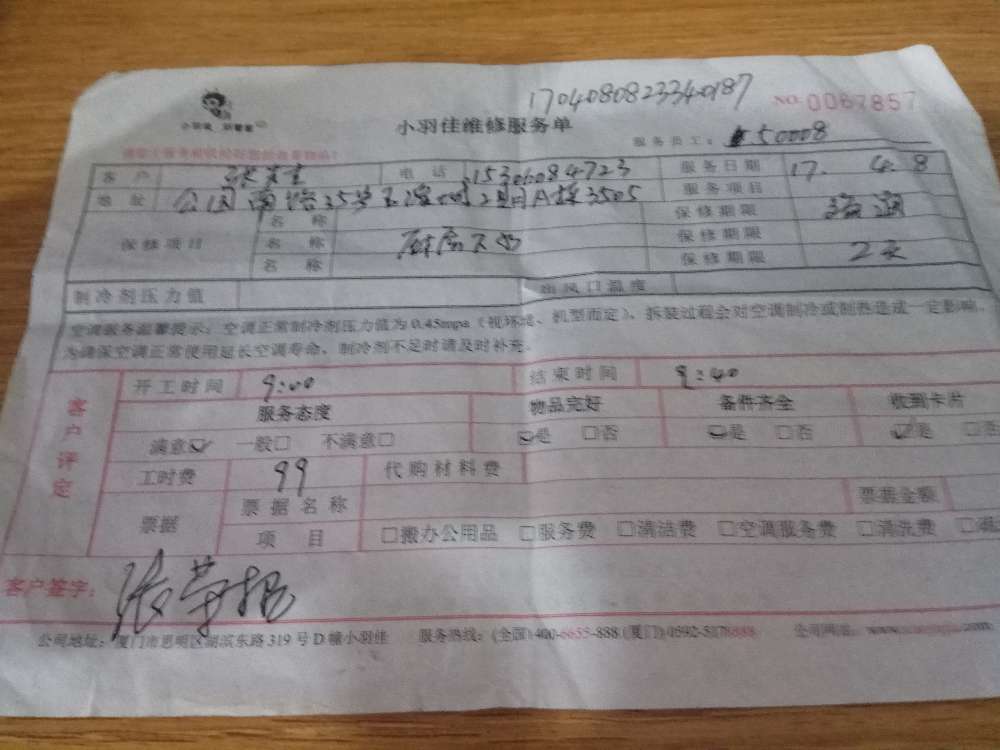 1704080823340187
NO. 0067857
小羽佳维修服务单
服务员工: 50008
客户 张先生 电话 15306084723 服务日期 17. 4. 8
地址 公园南路35号 2号A楼3505 服务项目
保修项目
名称 保修期限
名称 厨房 保修期限
名称 保修期限 2天
制冷剂压力值 出风口温度
空调服务温馨提示: 空调正常制冷剂压力值为0.45mpa (视环境、机型而定), 拆装过程会对空调制冷或制热造成一定影响,
为确保空调正常使用延长空调寿命, 制冷剂不足时请及时补充。
客户评定
开工时间 9:00 结束时间 9:40
服务态度 物品完好 备件齐全 收到卡片
满意☑ 一般□ 不满意□ ☑是 □否 ☑是 □否 ☑是 □否
工时费 99 代购材料费
票据 票据名称 票据金额
项目 □搬办公用品 □服务费 □清洁费 □空调服务费 □清洗费
客户签字:
公司地址: 厦门市思明区湖滨东路319号D幢小羽佳 服务热线: (全国)400-6655-888 (厦门)0592-5178888